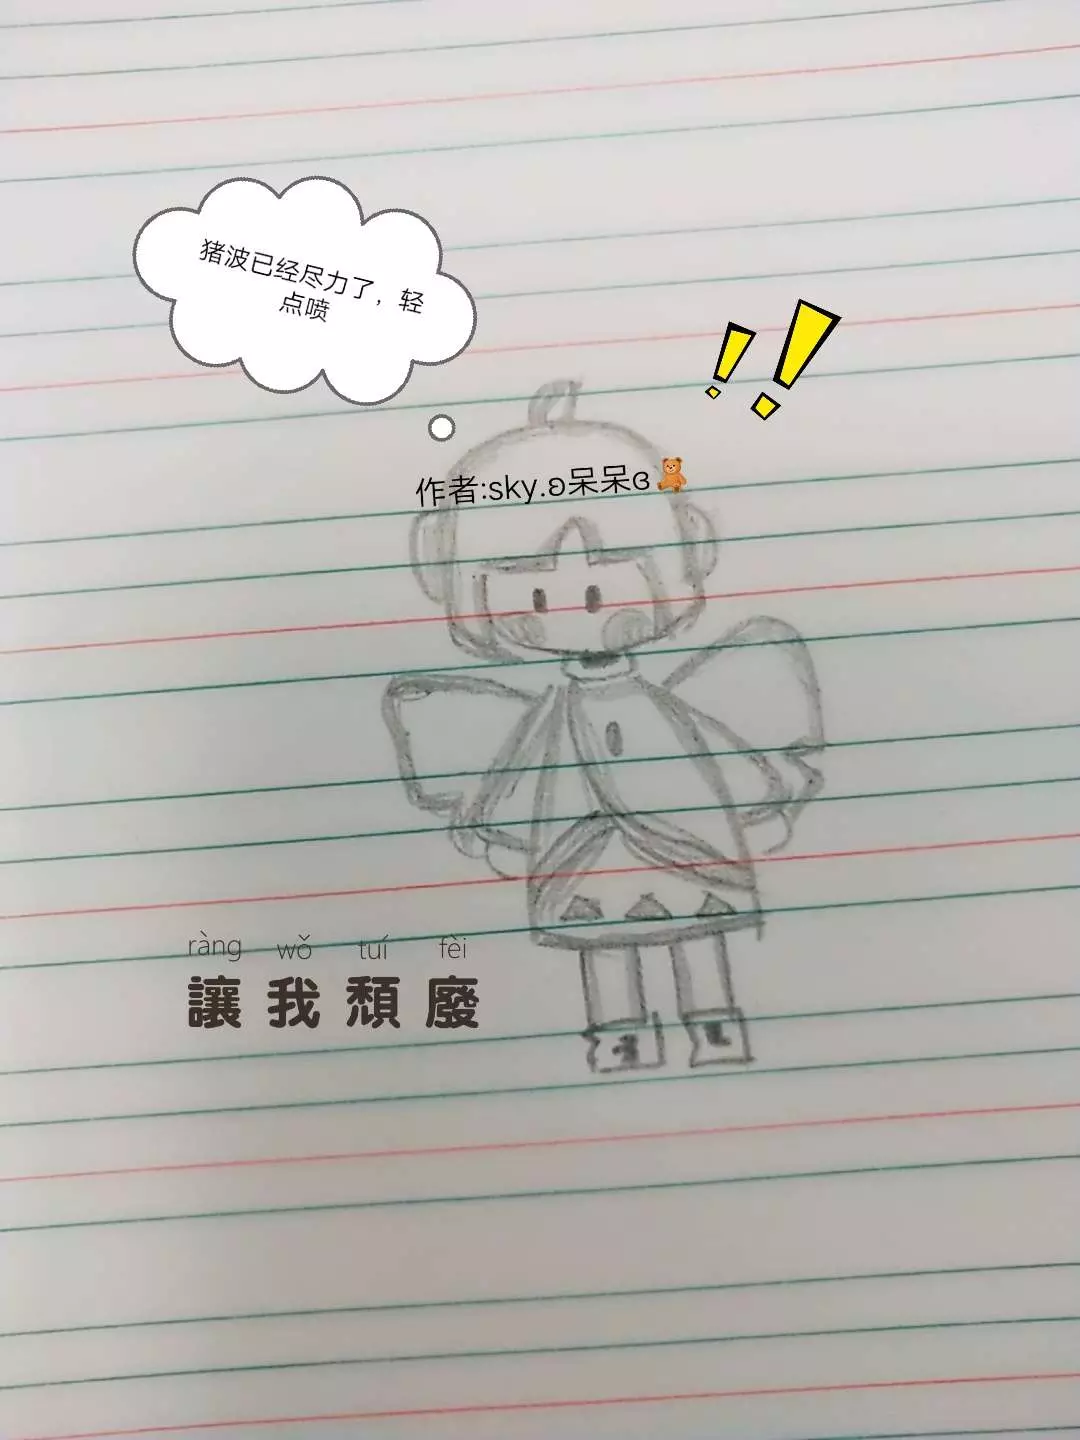 猪波已经尽力了，轻
点喷
作者:sky.ʚ呆呆ɞ🧸
ràng wǒ tuí fèi
讓我頹廢